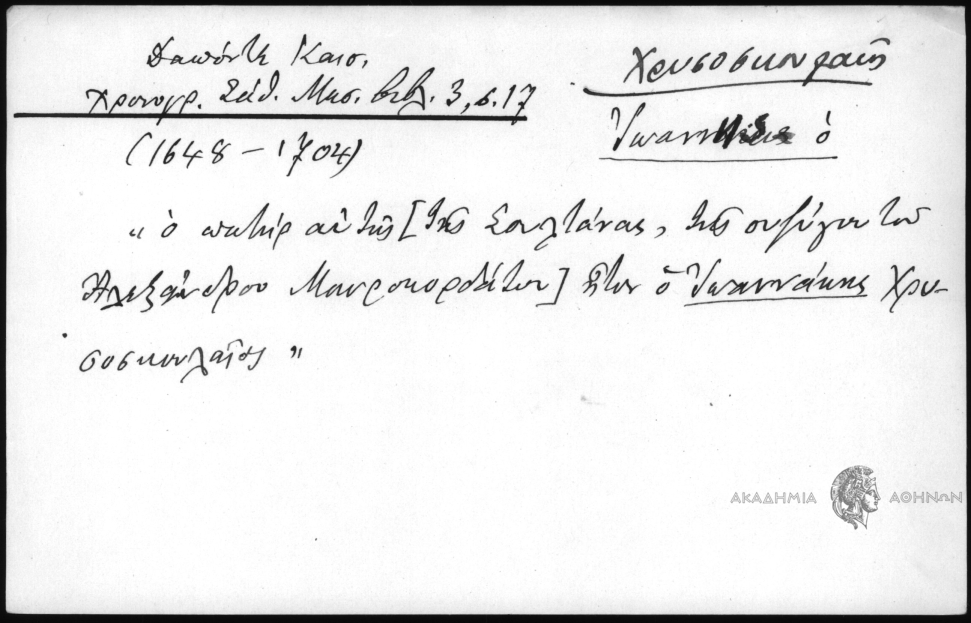 Δαπόντε Καισ.
Χρονογρ. Σάθ. Μεσ. Βιβλ. 3, σ. 17
(1648 – 1704)
Χρυσοσκουλαῖος
Ἰωαννάκης ὁ
„ ὁ πατὴρ αὐτῆς [τῆς Σουλτάνας, τῆς συζύγου τοῦ
Ἀλεξάνδρου Μαυροκορδάτου] ἦτον ὁ Ἰωαννάκης Χρυ-
σοσκουλαῖος "
ΑΚΑΔΗΜΙΑ ΑΘΗΝΩΝ